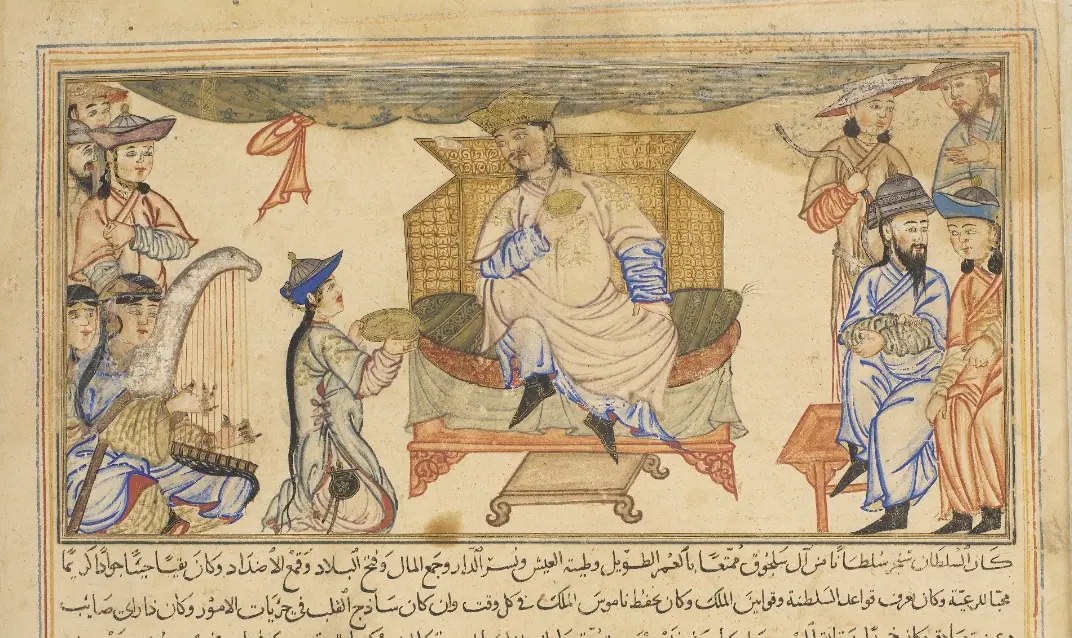 كان السلطان سنجر سلطانا من آل سلجوق ممتعا بالعمر الطويل وطيبة العيش ونشر الدار وجمع المال وفتح البلاد وقمع الأضداد وكان نقيا حييا جوادا كريما
محبا للرعية وكان يعرف قواعد السلطنة وقوانين الملك وكان يحفظ ناموس الملك في كل وقت وان كان ساذج القلب في جزيات الامور وكان ذا راي صايب